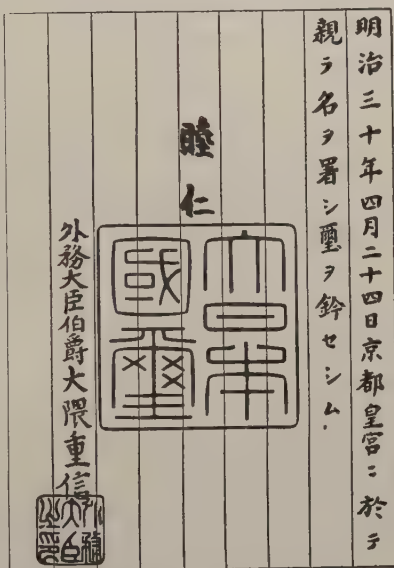 明治三十年四月二十四日京都皇宮ニ於テ
親ラ名ヲ署シ璽ヲ鈐セシム.
睦仁
大日本
國璽
外務大臣伯爵大隈重信
外務
大臣
之印